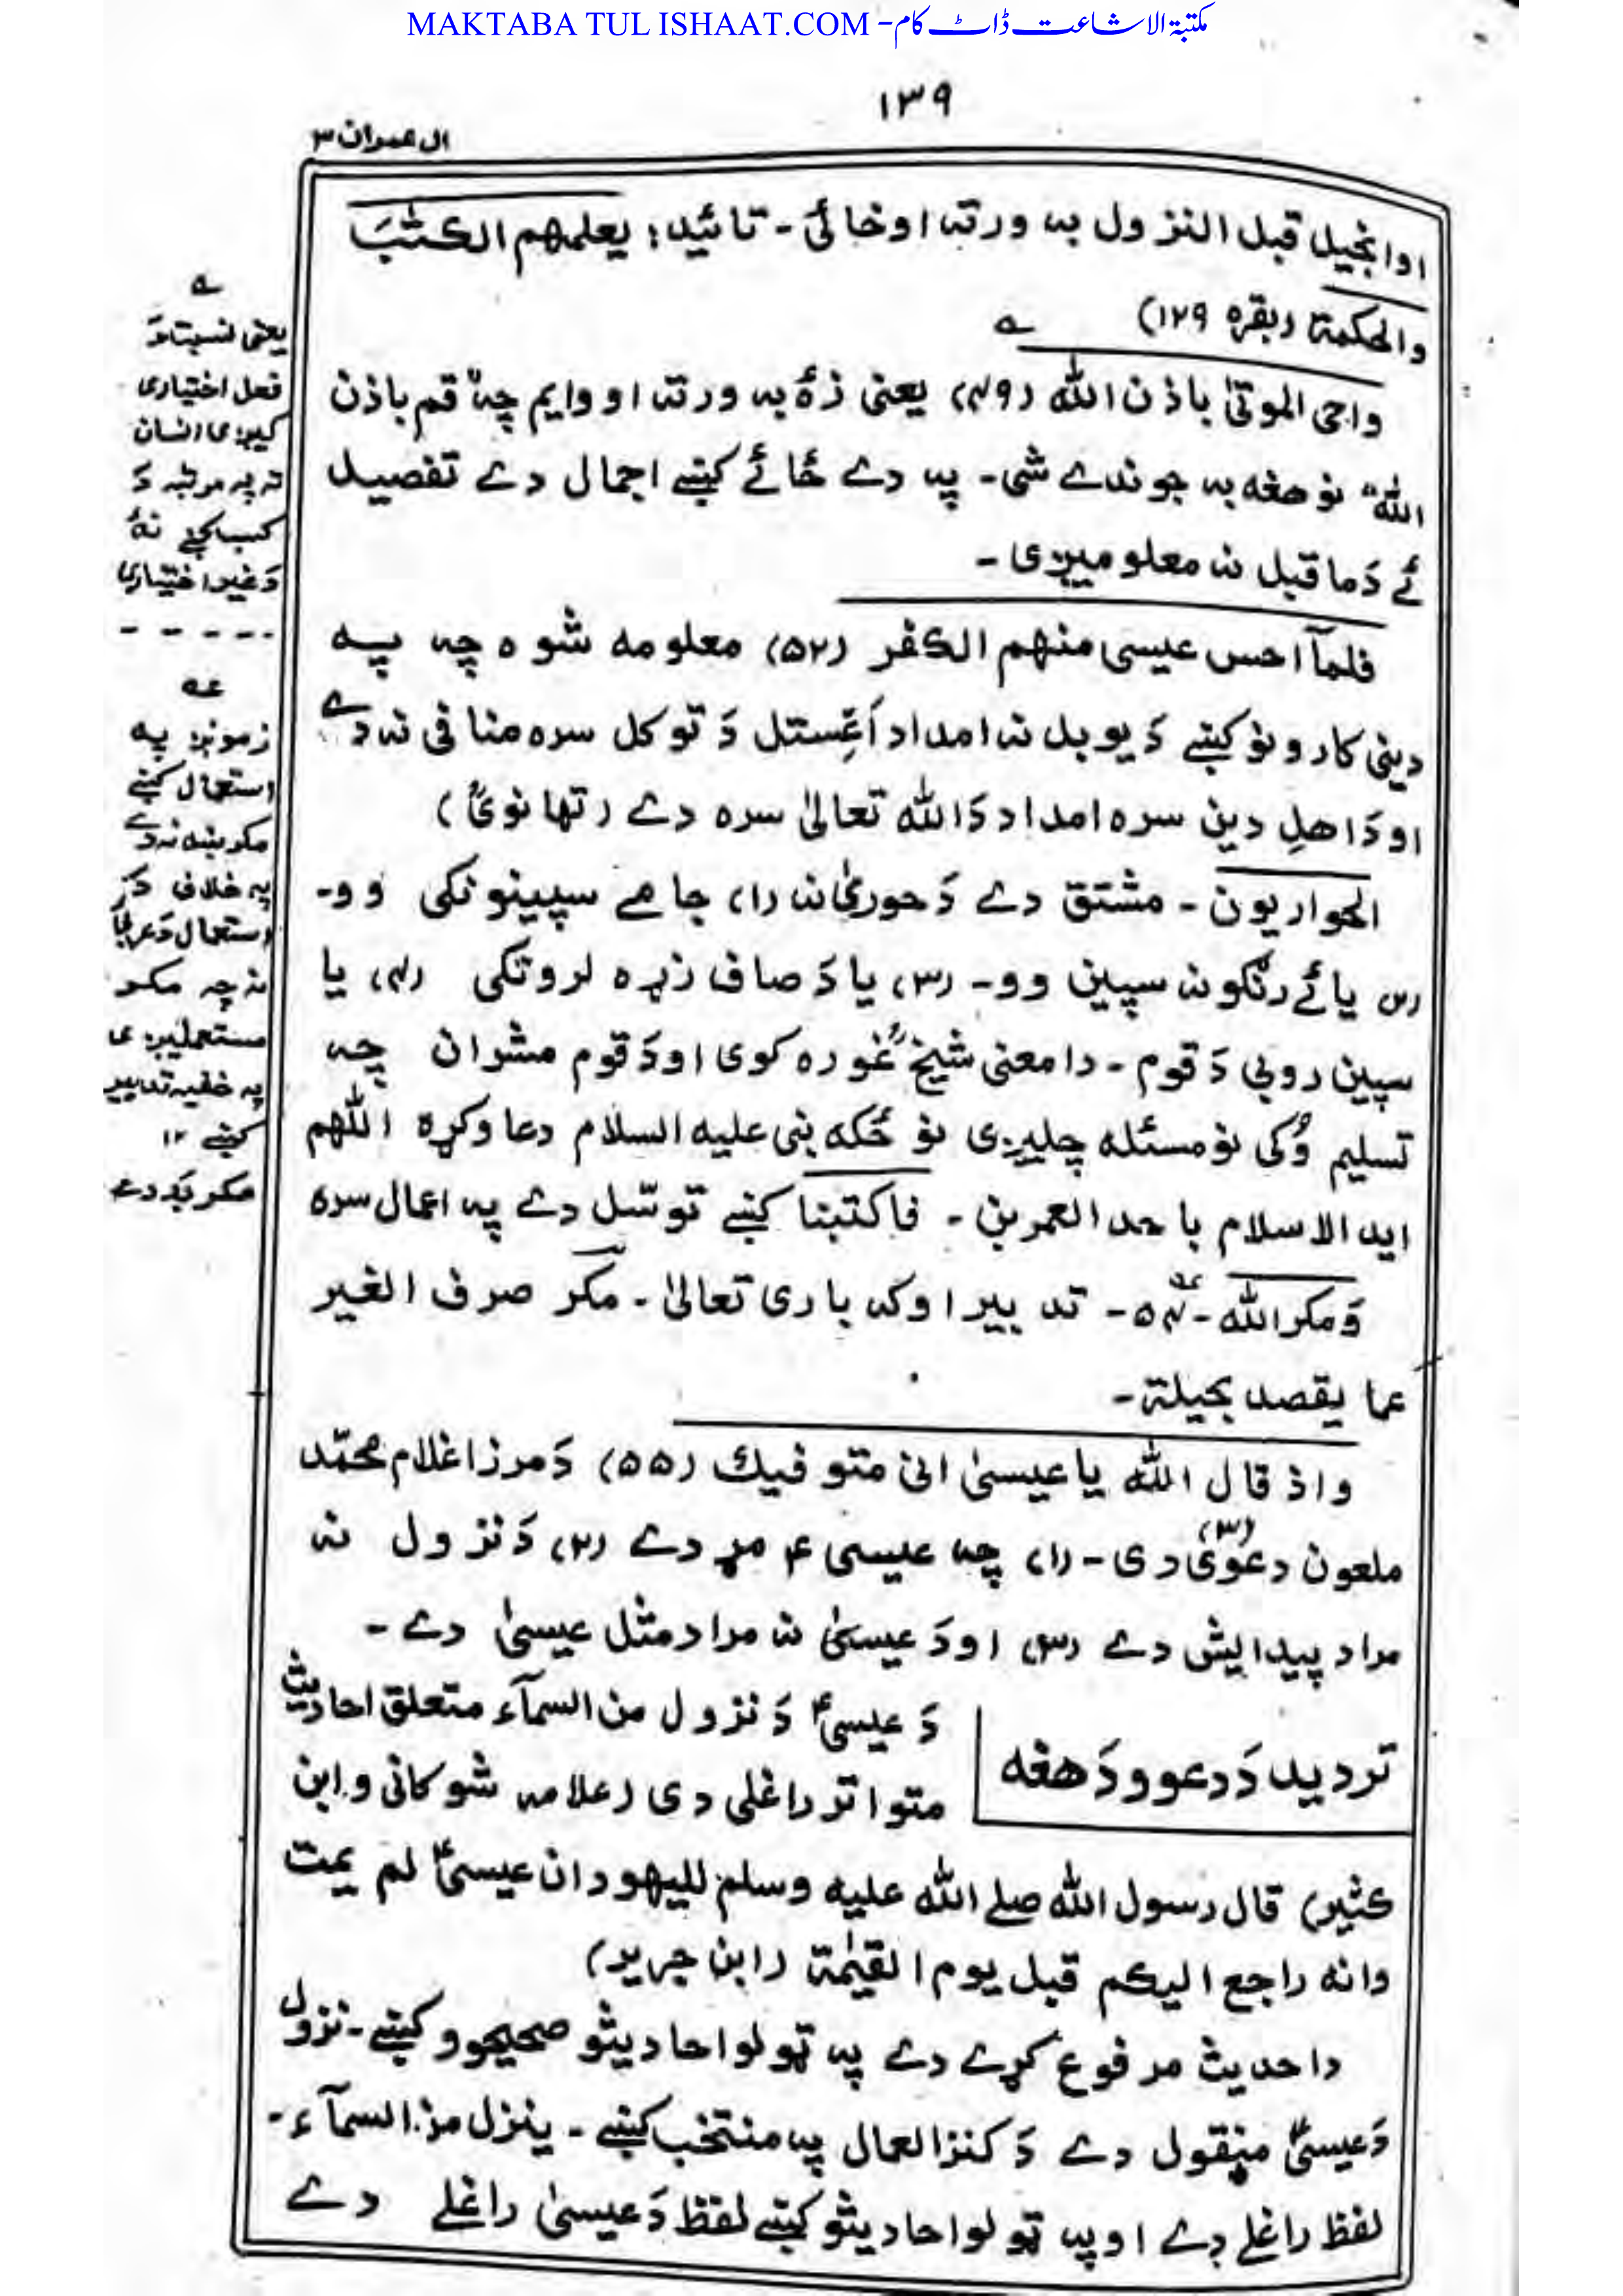 MAKTABA TUL ISHAAT.COM -مکتبۃ الاشاعت ڈاٹ کام
۱۳۹
ال عمران ۳
اوانجیل قبل النزول به ورته اوخائی - تائید: یعلمهم الکتٰبَ
والحکمة (بقره ۱۲۹) ے
واحی الموتیٰ باذن الله (۴۹) یعنی زۀ به ورته اووایم چه قم باذن
الله نو هغه به جوندے شی - په دے ځائے کښے اجمال دے تفصیل
ئے دَ ماقبل نه معلومیږی -
فلمآ احس عیسی منهم الکفر (۵۲) معلومه شوه چه په
دینی کارونو کښے دَ یوبل نه امداد اَغِستل دَ توکل سره منافی نه دے
او دَ اهلِ دین سره امداد دَ الله تعالیٰ سره دے (تهانویؒ)
الحواریون - مشتق دے دَ حوریٰ نه (۱) جامے سپینونکی وو-
(۲) یا ئے رنګونه سپین وو- (۳) یا دَ صاف زړه لرونکی (۴) یا
سپین روبی دَ قوم - دا معنی شیخؒ غوره کوی او دَ قوم مشران چه
تسلیم وُکی نو مسئله چلیږی نو ځکه نبی علیه السلام دعا وکړه اللّٰهم
اید الاسلام باحد العمرین - فاکتبنا کښے توسّل دے په اعمال سره
وَمکر الله - ۵۴ - تدبیر اوکه باری تعالیٰ - مکر صرف الغیر
عما یقصد بحیلة -
واذ قال الله یا عیسیٰ انی متوفیك (۵۵) دَ مرزا غلام محمّد
ملعون (۳) دعویٰ دی - (۱) چه عیسی ۴ مړ دے (۲) دَ نزول نه
مراد پیدایش دے (۳) او دَ عیسیٰ نه مراد مثل عیسیٰ دے -
تردید دَ دعوو دَ هغه
دَ عیسیؑ دَ نزول من السمآء متعلق احادیث
متواتر راغلی دی (علامه شوکانی و ابن
کثیر) قال رسول الله صلے الله علیه وسلم للیهود ان عیسیؑ لم یمت
وانه راجع الیکم قبل یوم القیٰمة (ابن جریر)
دا حدیث مرفوع کړے دے په ټولو احادیثو صحیحو کښے - نزول
دَ عیسیؑ منقول دے دَ کنز العمال په منتخب کښے - ینزل من السمآء -
لفظ راغلے دے او په ټولو احادیثو کښے لفظ دَ عیسیٰ راغلے دے
ے
یعنی نسبت دَ
فعل اختیاری
کیږی انسان
ته په مرتبه دَ
کسب کښے نهٔ
دَ غیر اختیاری
- - - - -
عه
زمونږ په
استعمال کښے
مکر ښه نه دے
په خلاف دَ
استعمال دَ عربئ
نه چه مکر
مستعملیږی
په خفیه تدبیر
کښے ۱۲
مکر بَد دے